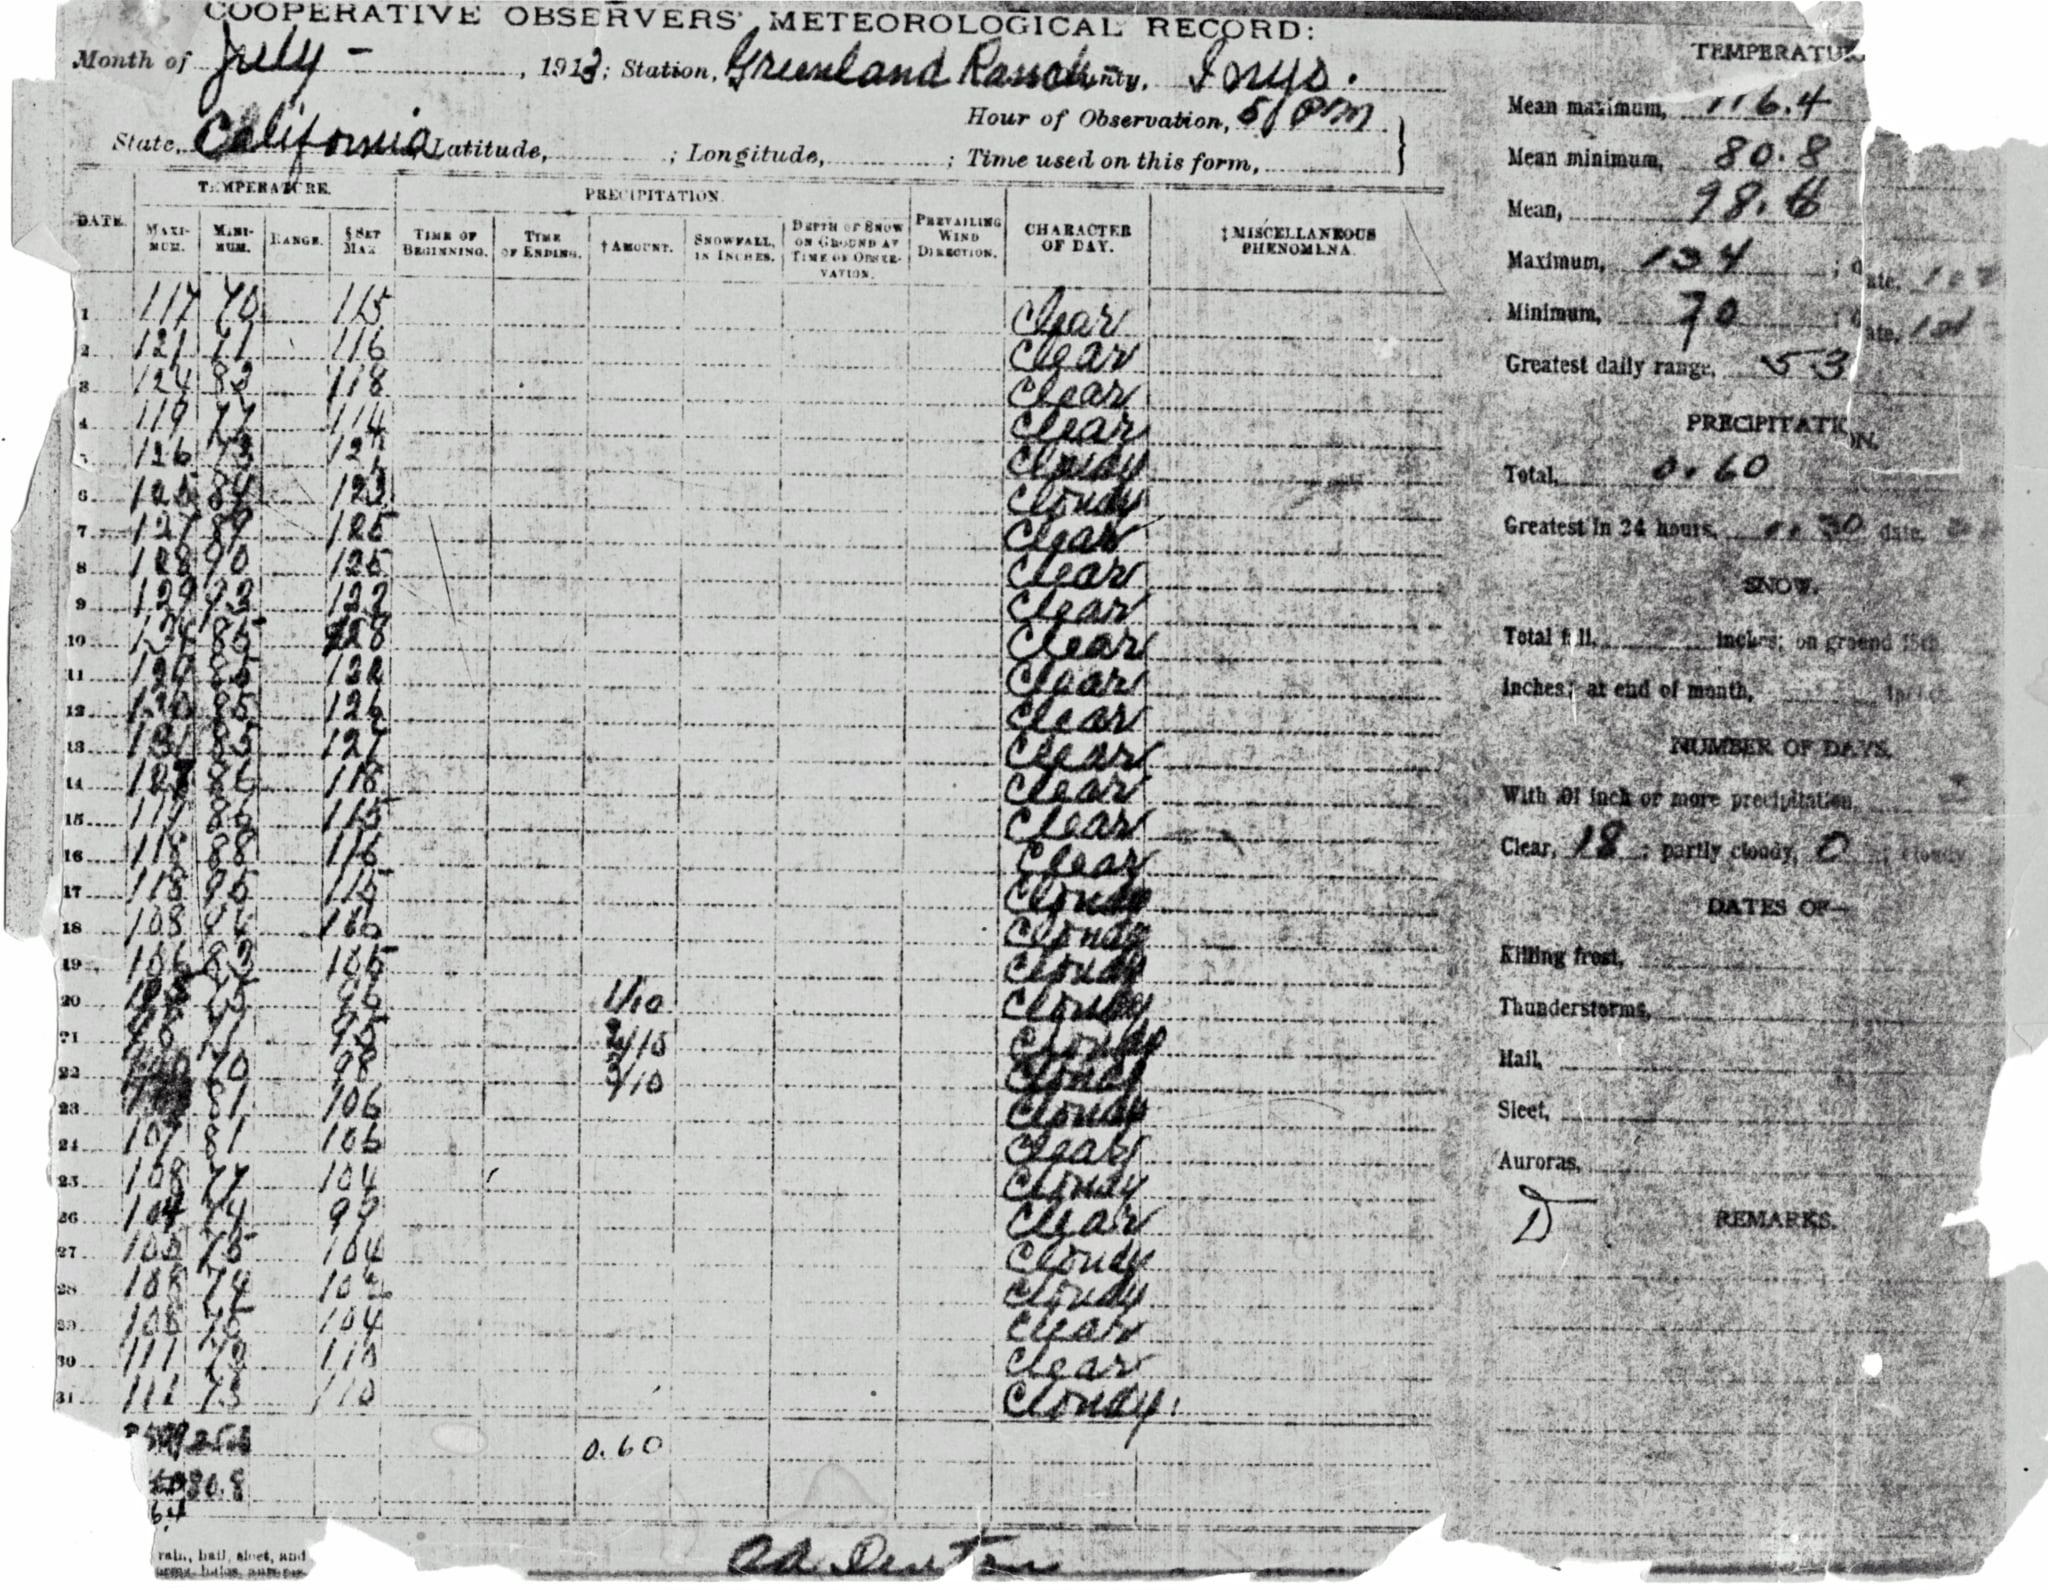 COOPERATIVE OBSERVERS' METEOROLOGICAL RECORD:
Month of July - , 1913; Station, Greenland Ranch County, Inyo.
Hour of Observation, 5 PM
State, California Latitude, ; Longitude, ; Time used on this form,
TEMPERATURE. PRECIPITATION.
DATE. MAXIMUM. MINIMUM. RANGE. § SET MAX TIME OF BEGINNING. TIME OF ENDING. † AMOUNT. SNOWFALL, IN INCHES. DEPTH OF SNOW ON GROUND AT TIME OF OBSERVATION. PREVAILING WIND DIRECTION. CHARACTER OF DAY. ‡ MISCELLANEOUS PHENOMENA
1 117 70 115 Clear
2 121 71 116 Clear
3 124 82 118 Clear
4 119 77 114 Clear
5 126 73 Cloudy
6 125 84 123 Cloudy
7 127 89 125 Clear
8 128 90 125 Clear
9 129 93 Clear
10 134 85 128 Clear
11 129 85 122 Clear
12 130 85 126 Clear
13 131 85 127 Clear
14 127 86 118 Clear
15 117 86 115 Clear
16 118 88 116 Clear
17 118 90 115 Cloudy
18 108 Cloudy
19 106 83 105 Cloudy
20 75 96 1/10 Cloudy
21 71 95 2/10 Cloudy
22 70 98 3/10 Cloudy
23 81 106 Cloudy
24 107 81 106 Clear
25 108 77 104 Cloudy
26 104 74 99 Clear
27 75 104 Cloudy
28 108 74 102 Cloudy
29 108 75 104 Clear
30 111 110 Clear
31 111 73 110 Cloudy.
0.60
80.8
rain, hail, sleet, and
TEMPERATURE
Mean maximum, 116.4
Mean minimum, 80.8
Mean, 98.6
Maximum, 134 ; date, 10
Minimum, 70 ; date, 1st
Greatest daily range, 53
PRECIPITATION.
Total, 0.60
Greatest in 24 hours, 0.30 date,
SNOW.
Total fall, inches; on ground 15th
inches; at end of month, inches
NUMBER OF DAYS.
With .01 inch or more precipitation, 3
Clear, 18 ; partly cloudy, 0 ; cloudy
DATES OF—
Killing frost,
Thunderstorms,
Hail,
Sleet,
Auroras,
REMARKS.